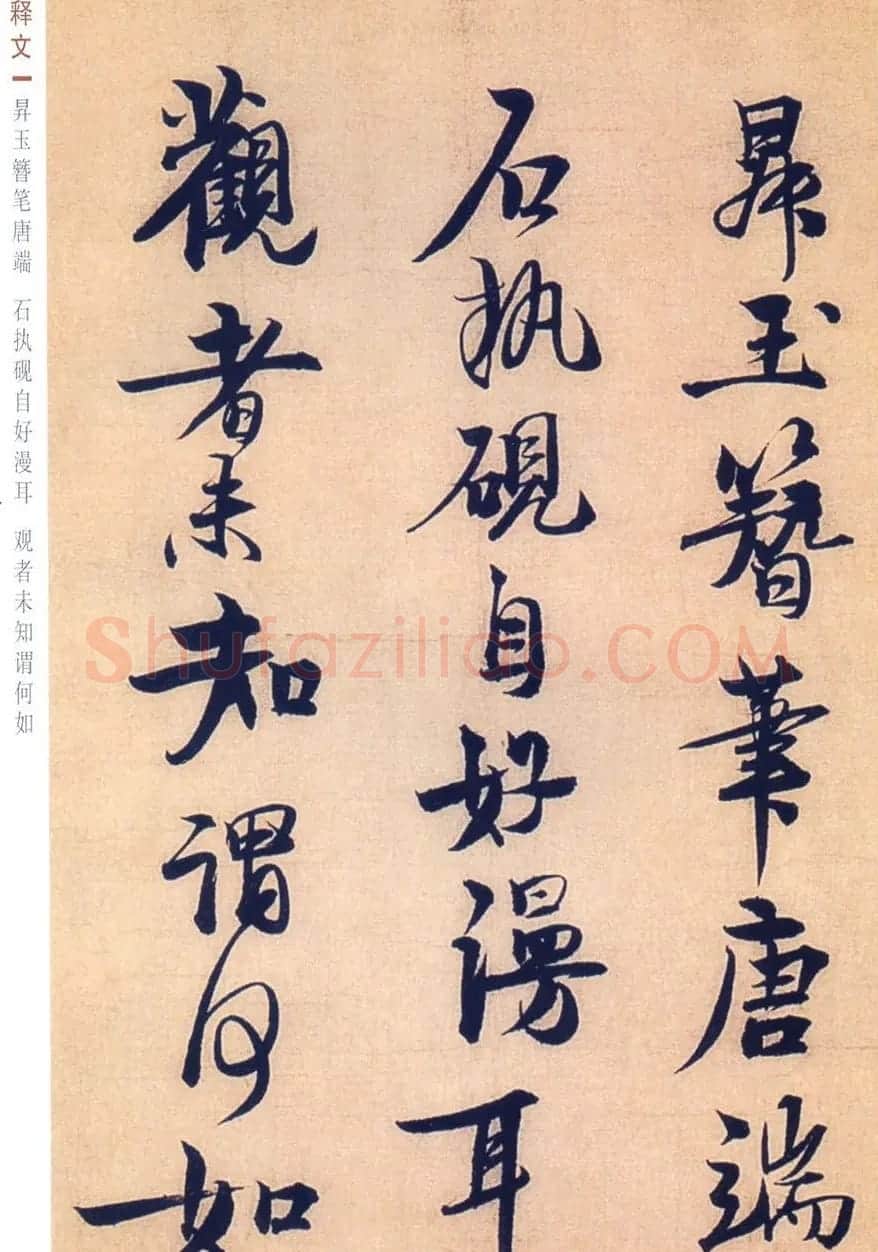 昇玉簪筆唐端
石执硯自好漫耳
觀者未知謂何如
释文
昇玉簪笔唐端 石执砚自好漫耳 观者未知谓何如
Shufaziliao.COM